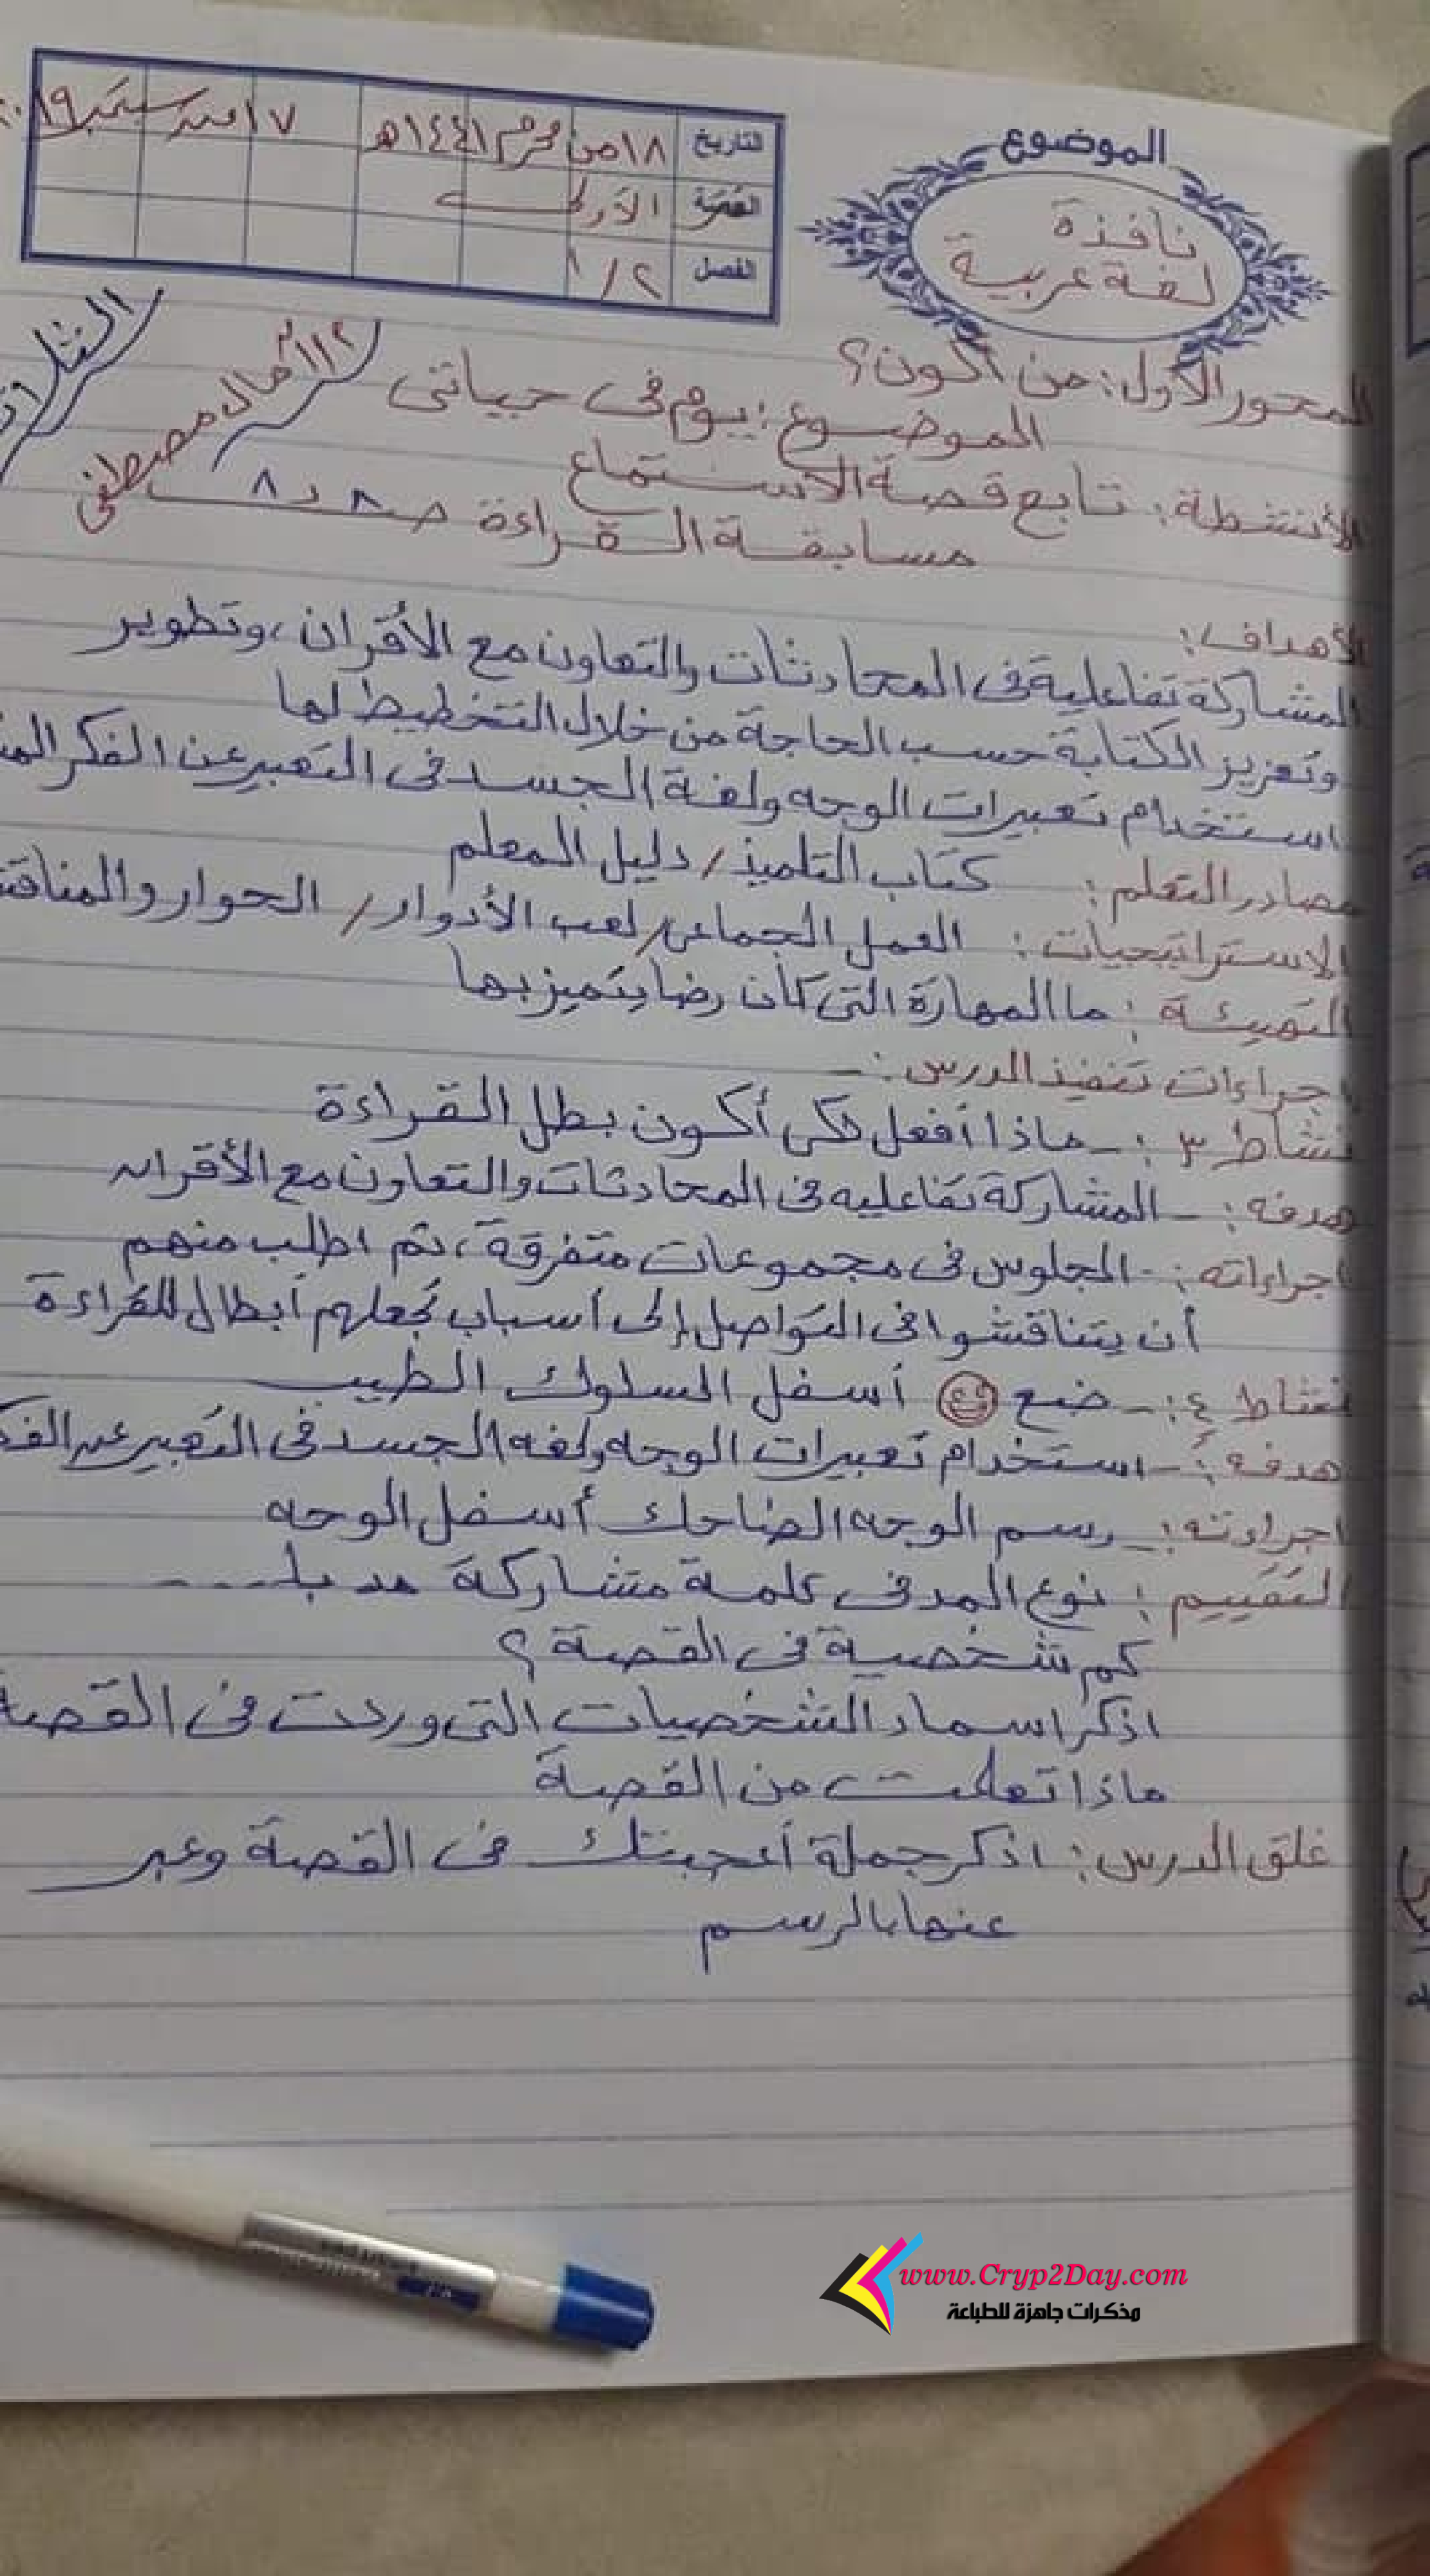 الموضوع
نافذة
لغة عربية
التاريخ ١٨ من محرم ١٤٤١هـ ١٧ من سبتمبر ٢٠١٩
الفترة الأولى
الفصل ١/٢
المحور الأول: من أكون؟
الموضوع: يوم فى حياتى
الأنشطة: تابع قصة الاستماع
مسابقة القراءة ص ٨ د ٨
مصطفى
الأهداف:
المشاركة تفاعلية فى المحادثات والتعاون مع الأقران، وتطوير
وتعزيز الكتابة حسب الحاجة من خلال التخطيط لها
استخدام تعبيرات الوجه ولغة الجسد فى التعبير عن الفكر
مصادر التعلم: كتاب التلميذ / دليل المعلم
الاستراتيجيات: العمل الجماعى / لعب الأدوار / الحوار والمناقشة
التهيئة: ما المهارة التى كان رضا يتميز بها
اجراءات تنفيذ الدرس:-
نشاط ٣:- ماذا أفعل لكى أكون بطل القراءة
هدفه:- المشاركة تفاعليه فى المحادثات والتعاون مع الأقران
اجراءاته:- الجلوس فى مجموعات متفرقة، ثم اطلب منهم
أن يتناقشوا فى التواصل إلى أسباب تجعلهم أبطال للقراءة
نشاط ٤:- ضع أسفل السلوك الطيب
هدفه:- استخدام تعبيرات الوجه ولغه الجسد فى التعبير عن الفكر
اجراءته:- رسم الوجه الضاحك أسفل الوجه
التقييم: نوع المد فى كلمة مشاركة مد بـا ....
كم شخصية فى القصة؟
اذكر اسماء الشخصيات التى وردت فى القصة
ماذا تعلمت من القصة
غلق الدرس: اذكر جملة أعجبتك فى القصة وعبر
عنها بالرسم
www.Cryp2Day.com
مذكرات جاهزة للطباعة